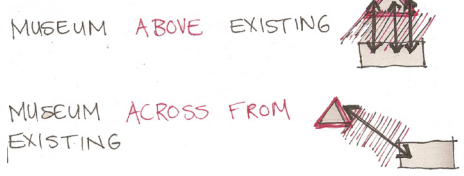 MUSEUM ABOVE EXISTING
MUSEUM ACROSS FROM
EXISTING